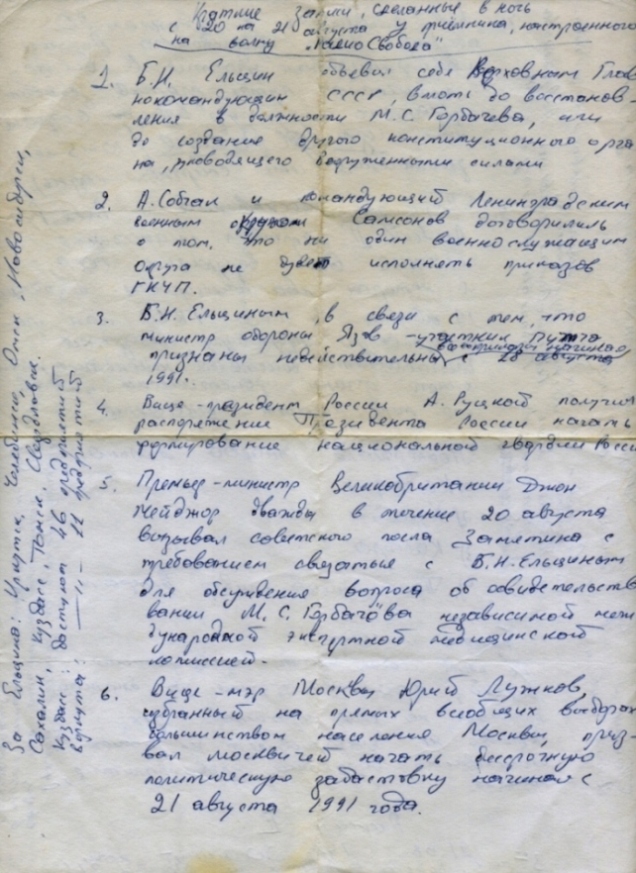 Краткие записи, сделанные в ночь
с 20 на 21 августа у приёмника, настроенного
на волну "Радио Свобода"
1. Б.Н. Ельцин объявил себя Верховным Глав
нокомандующим СССР, вплоть до восстанов-
ления в должности М.С. Горбачева, или
до создания другого конституционного орга
на, руководящего вооруженными силами
2. А. Собчак и командующий Ленинградским
военным округом Самсонов договорились
о том, что ни один военнослужащий
округа не будет исполнять приказов
ГКЧП.
3. Б.Н. Ельциным, в связи с тем, что
министр обороны Язов - участник путча
признаны недействительны с 20 августа
1991.
4. Вице-президент России А. Руцкой получил
распоряжение Президента России начать
формирование национальной гвардии Росси
5. Премьер-министр Великобритании Джон
Мейджор дважды в течение 20 августа
вызывал советского посла Замятина с
требованием связаться с Б.Н. Ельциным
для обсуждения вопроса об освидетельств
вании М.С. Горбачёва независимой меж
дународной экспертной медицинской
комиссией.
6. Вице-мэр Москвы Юрий Лужков,
избранный на прямых всеобщих выборах
большинством населения Москвы, приз-
вал москвичей начать бессрочную
политическую забастовку начиная с
21 августа 1991 года.
За Ельцина: Иркутск, Челябинск, Омск, Новосибирск,
Сахалин, Кузбасс, Томск, Свердловск.
Кузбасс: бастуют 46 предприятий
Воркута: —"— 11 предприятий